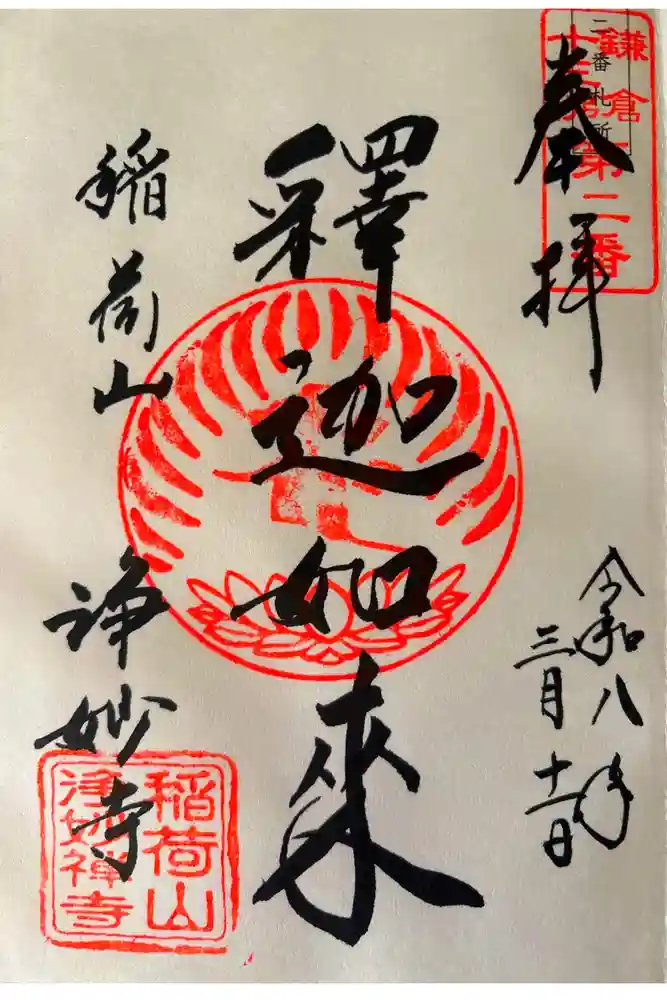 奉拝
鎌倉
十三佛第二番
二番札所
令和八年
三月十一日
釋迦如来
稲荷山
淨妙寺
稲荷山
淨妙禅寺